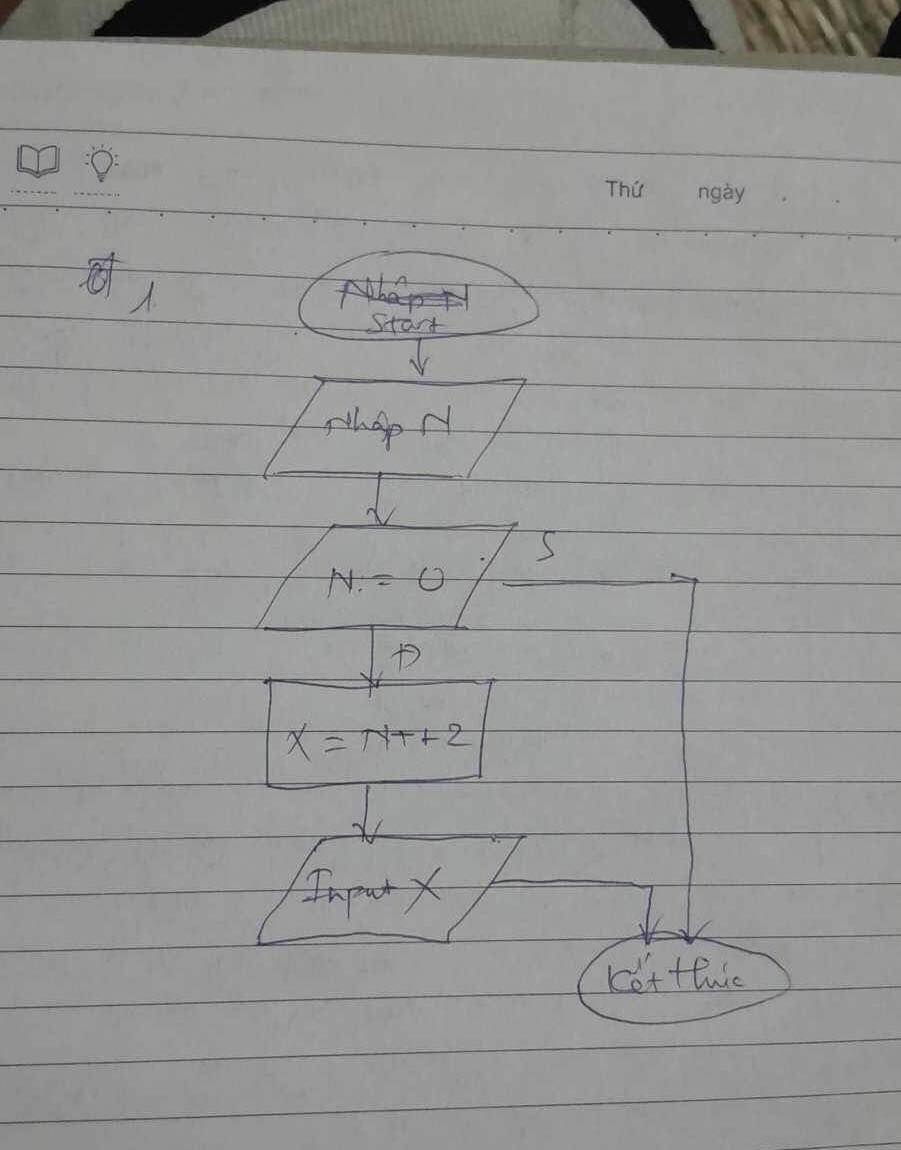 Thứ ngày
1
Nhập N
Start
Nhập N
N:= 0
S
Đ
X = N++2
Input X
Kết thúc